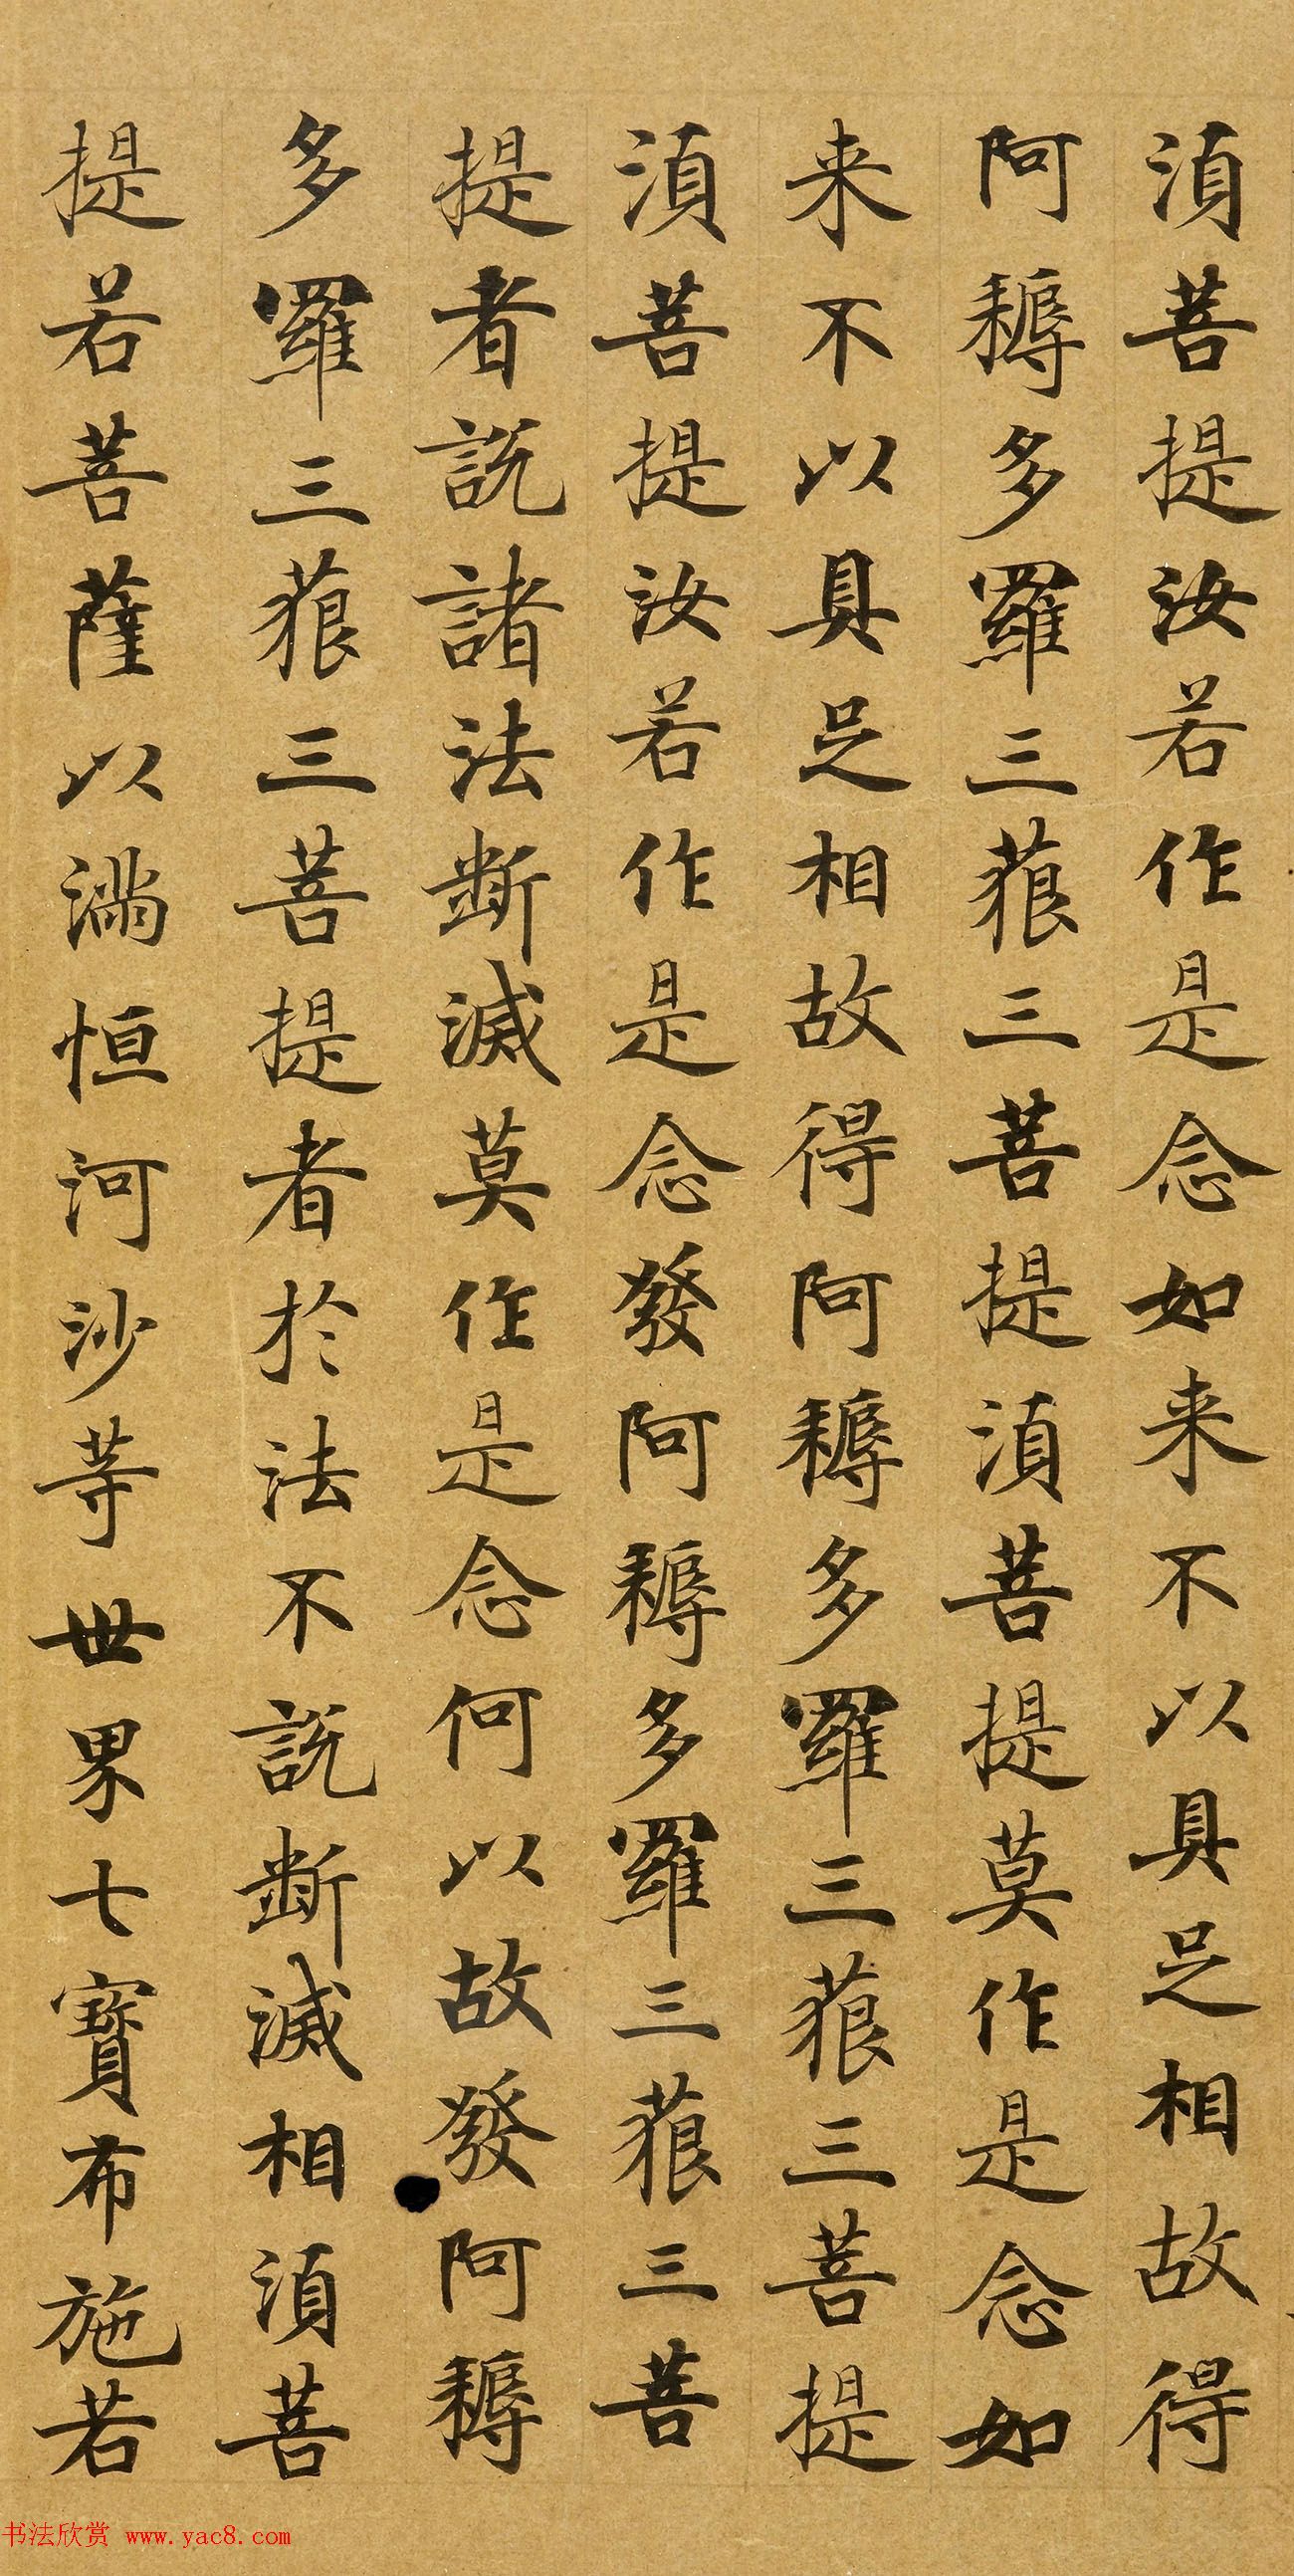 須菩提汝若作是念如来不以具足相故得
阿耨多羅三藐三菩提須菩提莫作是念如
来不以具足相故得阿耨多羅三藐三菩提
須菩提汝若作是念發阿耨多羅三藐三菩
提者説諸法断滅莫作是念何以故發阿耨
多羅三藐三菩提者於法不説断滅相須菩
提若菩薩以滿恒河沙等世界七寶布施若
书法欣赏 www.yac8.com